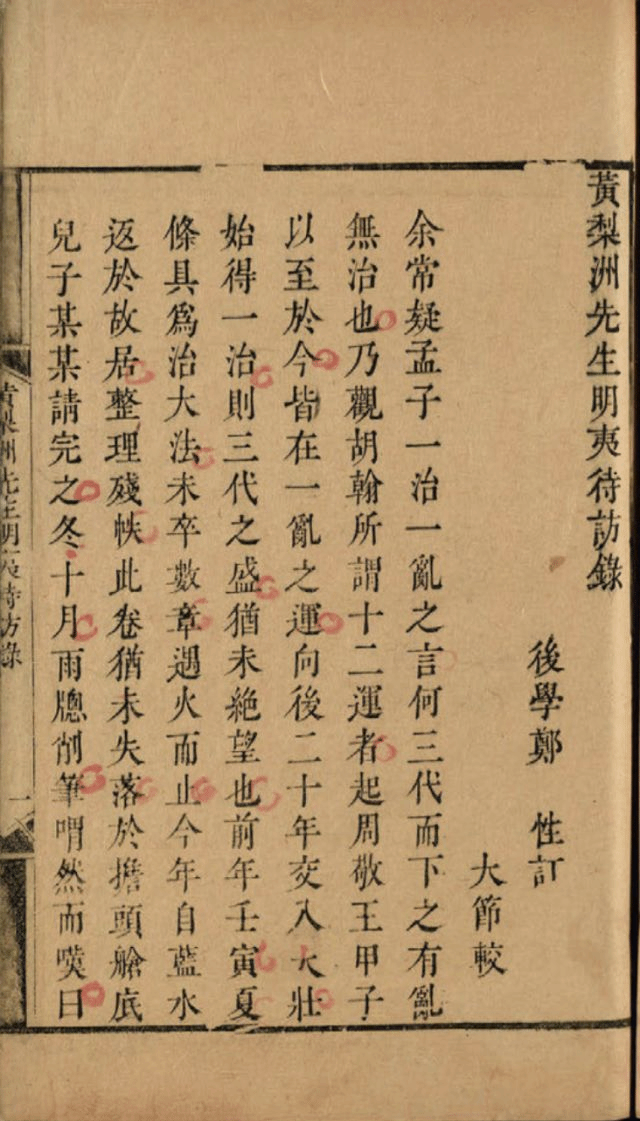 黃梨洲先生明夷待訪錄
後學鄭 性訂
大節較
余常疑孟子一治一亂之言何三代而下之有亂
無治也乃觀胡翰所謂十二運者起周敬王甲子
以至於今皆在一亂之運向後二十年交入大壯
始得一治則三代之盛猶未絶望也前年壬寅夏
條具爲治大法未卒數章遇火而止今年自藍水
返於故居整理殘帙此卷猶未失落於擔頭艙底
兒子某某請完之冬十月雨牕削筆喟然而嘆曰
黃梨洲先生明夷待訪錄 一